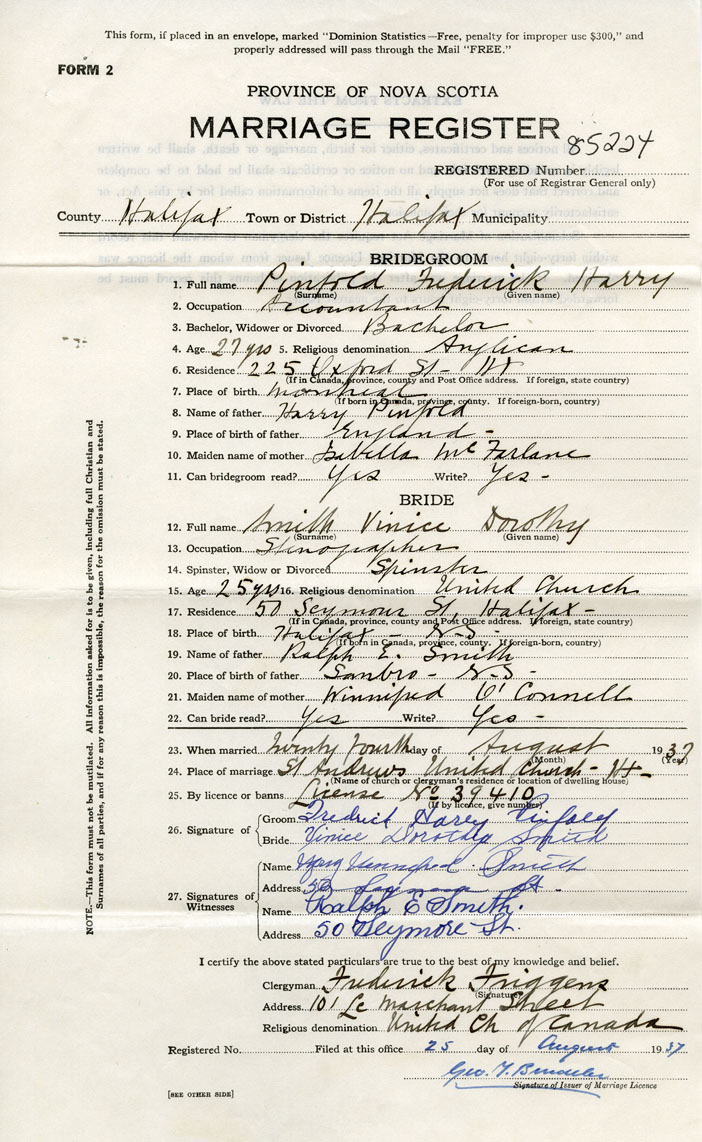 This form, if placed in an envelope, marked "Dominion Statistics—Free, penalty for improper use $300," and
properly addressed will pass through the Mail "FREE."
FORM 2
PROVINCE OF NOVA SCOTIA
MARRIAGE REGISTER
85224
REGISTERED Number
(For use of Registrar General only)
County Halifax Town or District Halifax Municipality
BRIDEGROOM
1. Full name Pinfold Frederick Harry
(Surname) (Given name)
2. Occupation Accountant
3. Bachelor, Widower or Divorced Bachelor
4. Age 27 yrs 5. Religious denomination Anglican
6. Residence 225 Oxford St - Hx
(If in Canada, province, county and Post Office address. If foreign, state country)
7. Place of birth Montreal
(If born in Canada, province, county. If foreign-born, country)
8. Name of father Harry Pinfold
9. Place of birth of father England -
10. Maiden name of mother Isabella McFarlane
11. Can bridegroom read? Yes Write? Yes -
BRIDE
12. Full name Smith Vinice Dorothy
(Surname) (Given name)
13. Occupation Stenographer
14. Spinster, Widow or Divorced Spinster
15. Age 25 yrs 16. Religious denomination United Church
17. Residence 50 Seymour St, Halifax -
(If in Canada, province, county and Post Office address. If foreign, state country)
18. Place of birth Halifax - N-S -
(If born in Canada, province, county. If foreign-born, country)
19. Name of father Ralph E. Smith
20. Place of birth of father Sambro - N-S -
21. Maiden name of mother Winnifred O'Connell
22. Can bride read? Yes Write? Yes -
23. When married Twenty fourth day of August 1937
(Month) (Year)
24. Place of marriage St Andrews United Church - Hx -
(Name of church or clergyman's residence or location of dwelling house)
25. By licence or banns License No 39410
(If by licence, give number)
26. Signature of Groom Fredrick Harry Pinfold
Bride Vinice Dorothy Smith
27. Signatures of Witnesses
Name Smith
Address 50 St -
Name Ralph E Smith.
Address 50 Seymore St.
I certify the above stated particulars are true to the best of my knowledge and belief.
Clergyman Frederick Friggens
(Signature)
Address 101 Le Marchant Street
Religious denomination United Ch of Canada
Registered No. Filed at this office 25 day of August 1937
Geo. T.
Signature of Issuer of Marriage Licence
[SEE OTHER SIDE]
NOTE.—This form must not be mutilated. All information asked for is to be given, including full Christian and
Surnames of all parties, and if for any reason this is impossible, the reason for the omission must be stated.